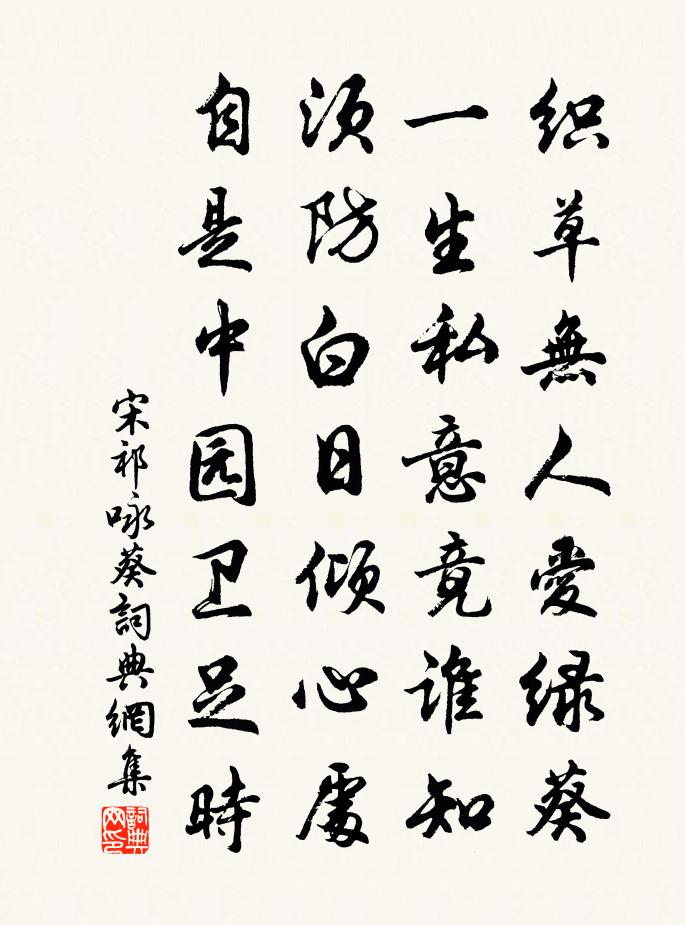 织草無人愛绿葵
一生私意竟谁知
须防白日倾心處
自是中园卫足時
宋祁咏葵詞典網集
詞典网印